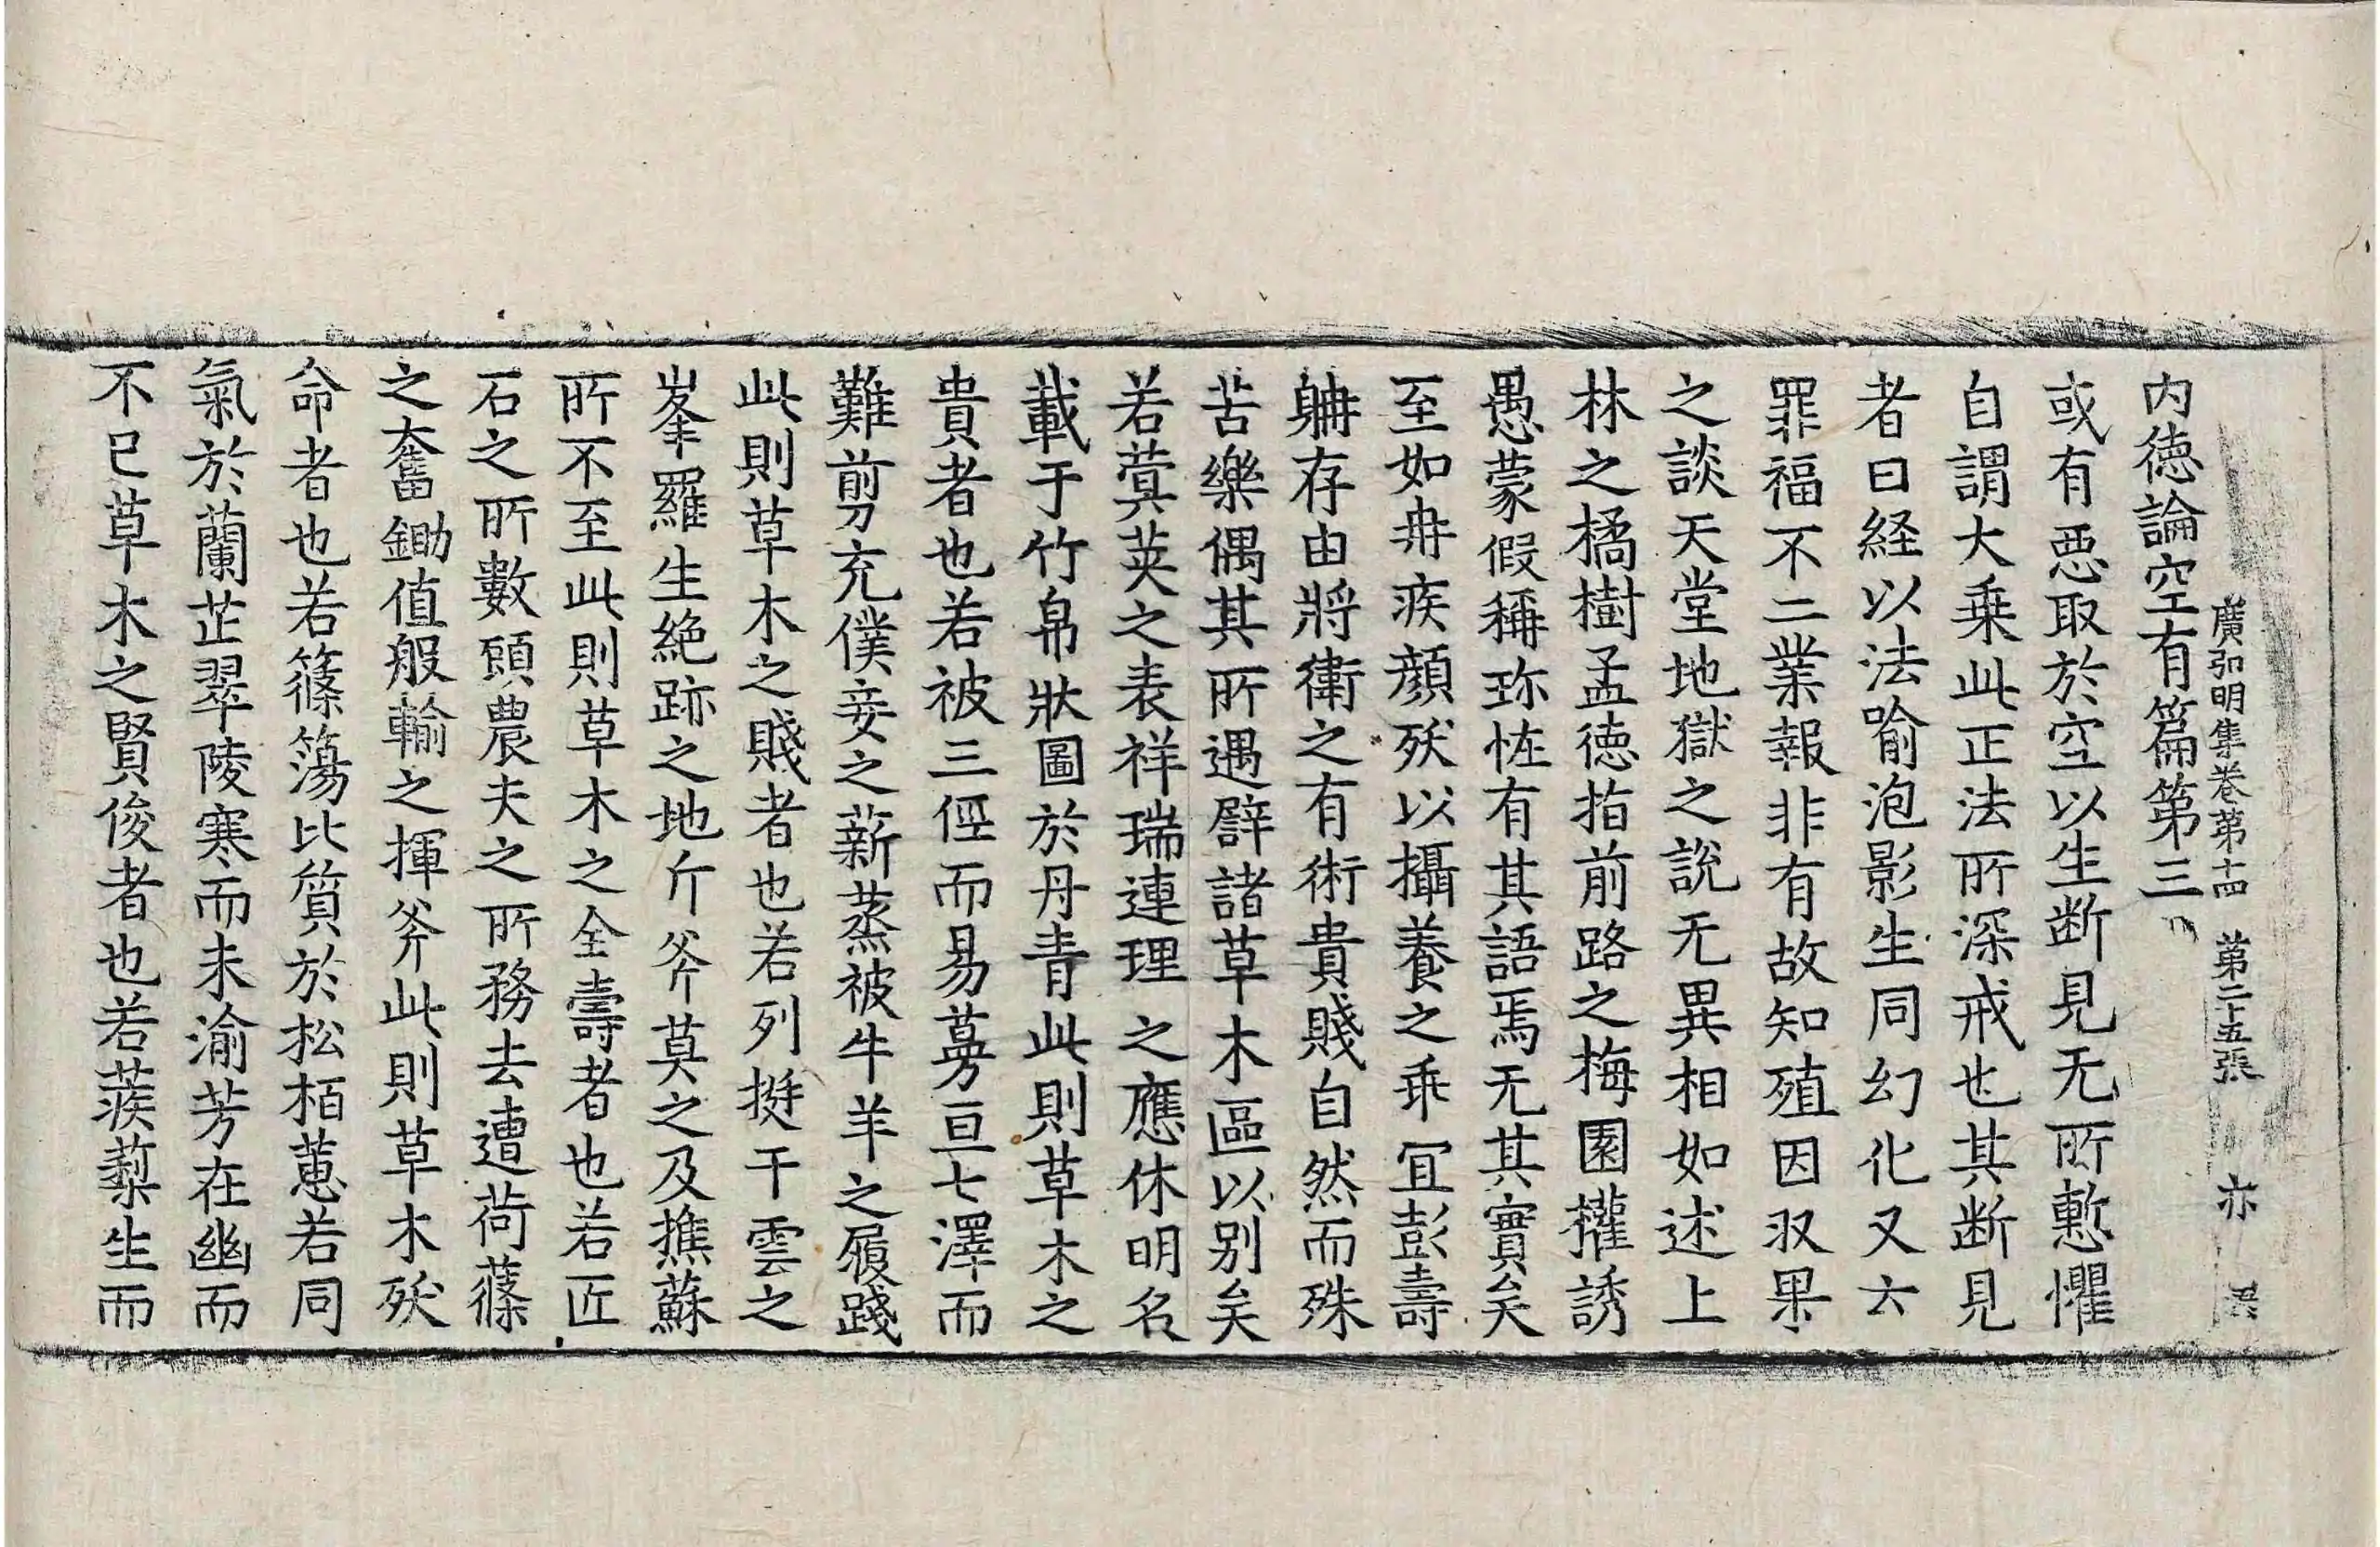 廣弘明集卷第十四 第二十五張 亦
内徳論空有篇第三
或有惡取於空以生断見无所慙懼
自謂大乗此正法所深戒也其断見
者曰経以法喻泡影生同幻化又六
罪福不二業報非有故知殖因収果
之談天堂地獄之說无異相如述上
林之橘樹孟徳指前路之梅園權誘
愚蒙假稱珎恠有其語焉无其實矣
至如冉疾顔殀以攝養之乖冝彭壽
𦕅存由將衛之有術貴賤自然而殊
苦樂偶其所遇譬諸草木區以别矣
若蓂莢之表祥瑞連理之應休明名
載于竹帛狀圖於丹青此則草木之
貴者也若被三徑而易蔓亘七澤而
難剪充僕妾之薪蒸被牛羊之履踐
此則草木之賤者也若列挺干雲之
峯羅生絶跡之地斤斧莫之及樵蘇
所不至此則草木之全壽者也若匠
石之所數頋農夫之所務去遭荷蓧
之奮鋤值般輸之揮斧此則草木殀
命者也若篠簜比質於松栢蕙若同
氣於蘭芷翠陵寒而未渝芳在幽而
不已草木之賢俊者也若蒺蔾生而